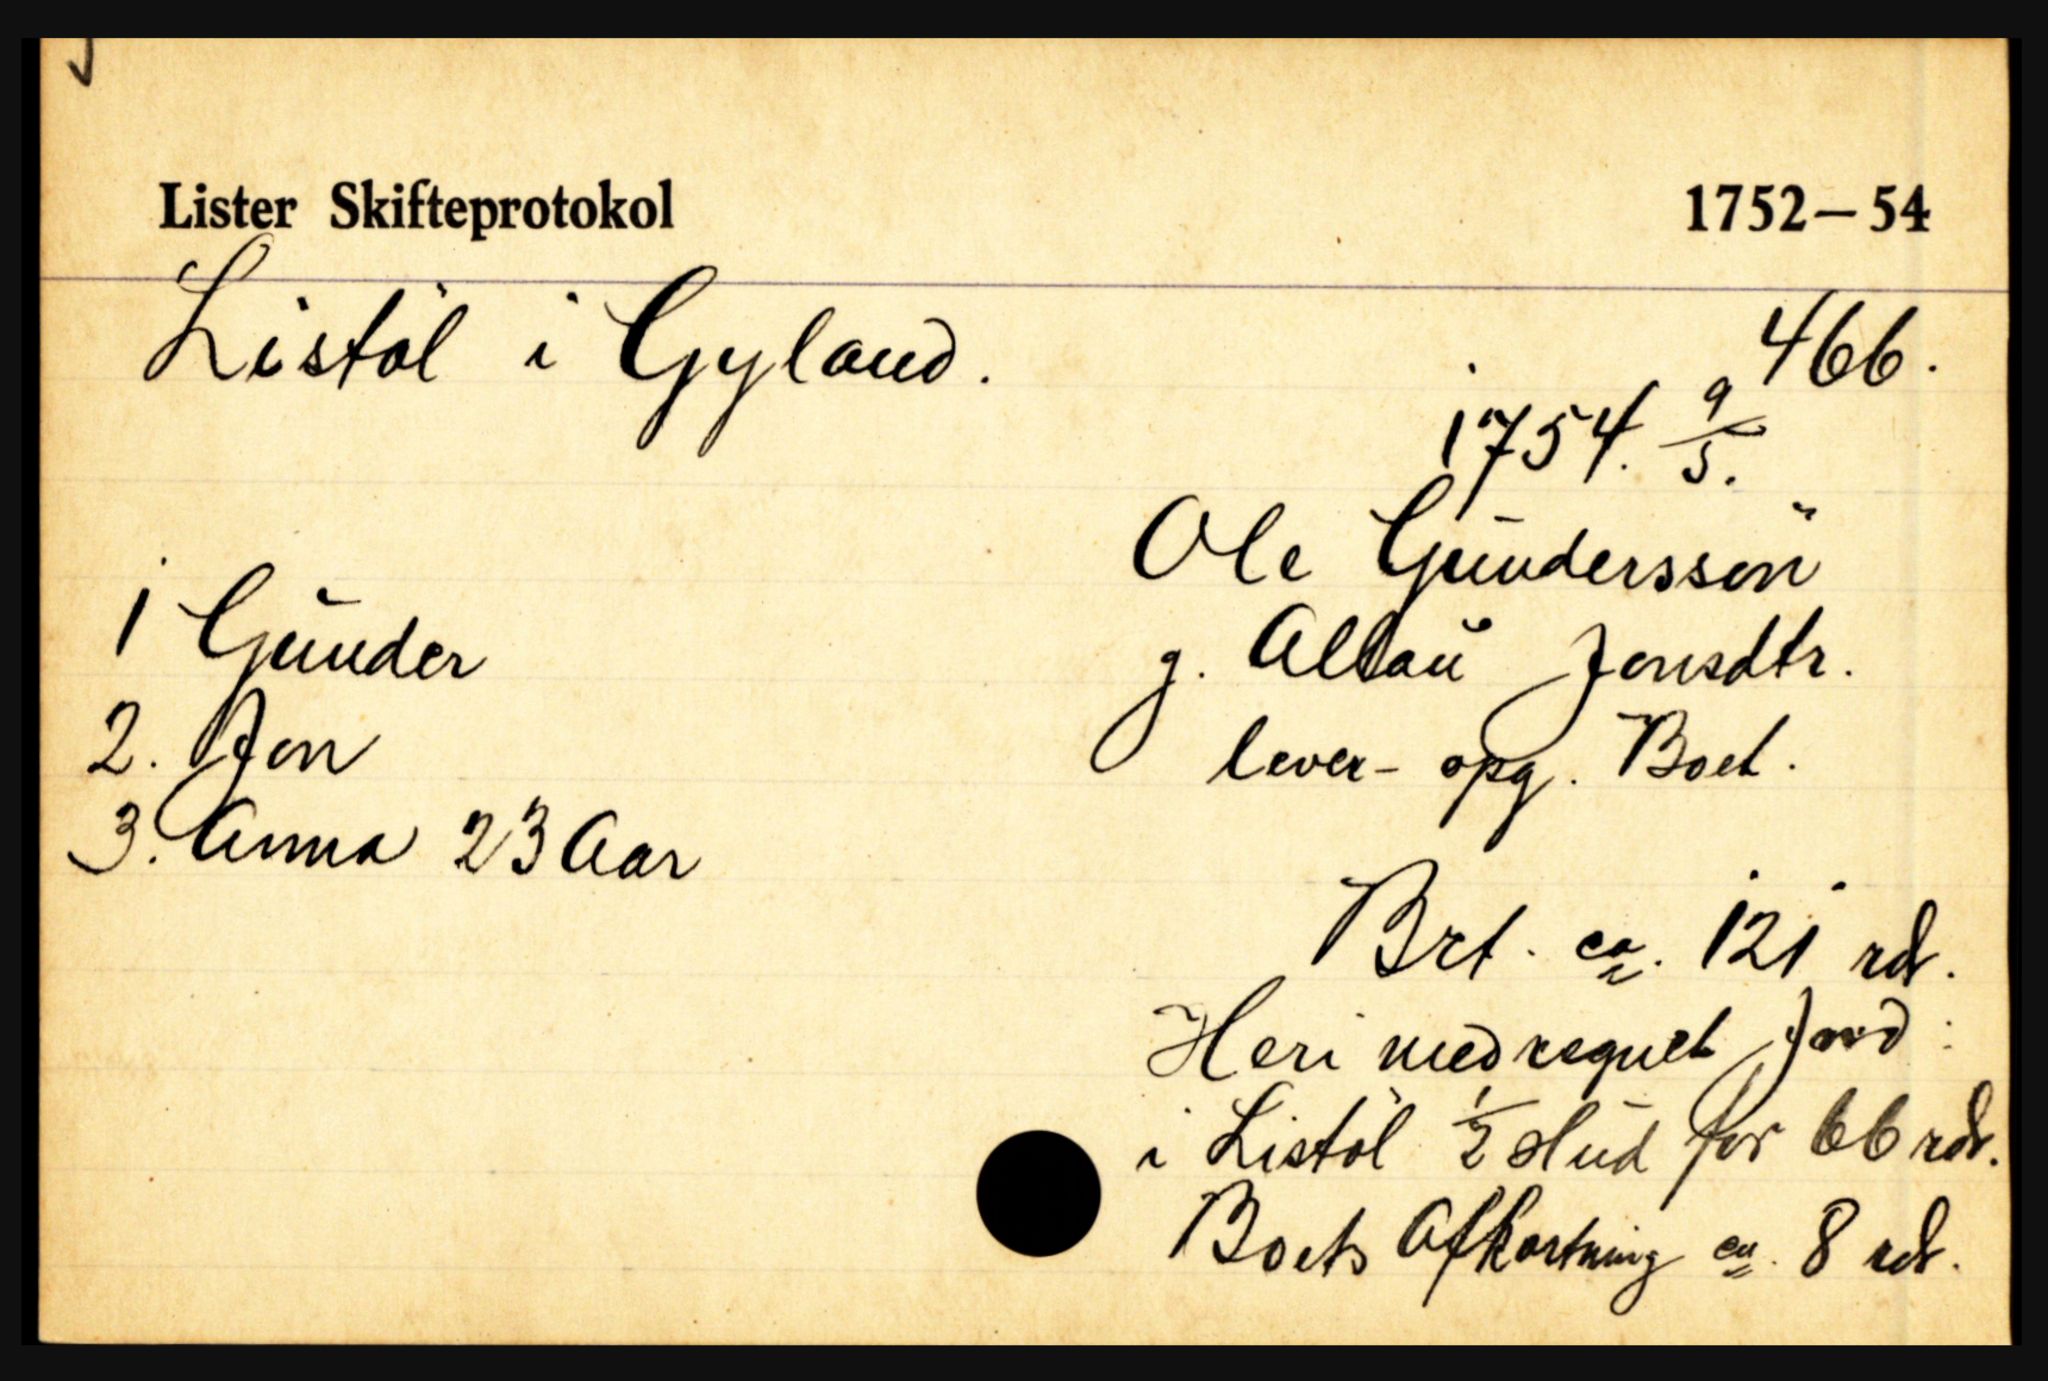 Lister Skifteprotokol 1752-54
Listöl i Gyland.
466.
1754. 9/5.
Ole Gundersson
g. Jonsdtr.
lever - opg. Boet.
1 Gunder
2. Jon
3. Anna 23 Aar
Brt. ca. 121 rdr.
Heri medregnet Jord:
i Listöl 1/2 Hud for 66 rdr.
Boets Afkortning ca. 8 rdr.